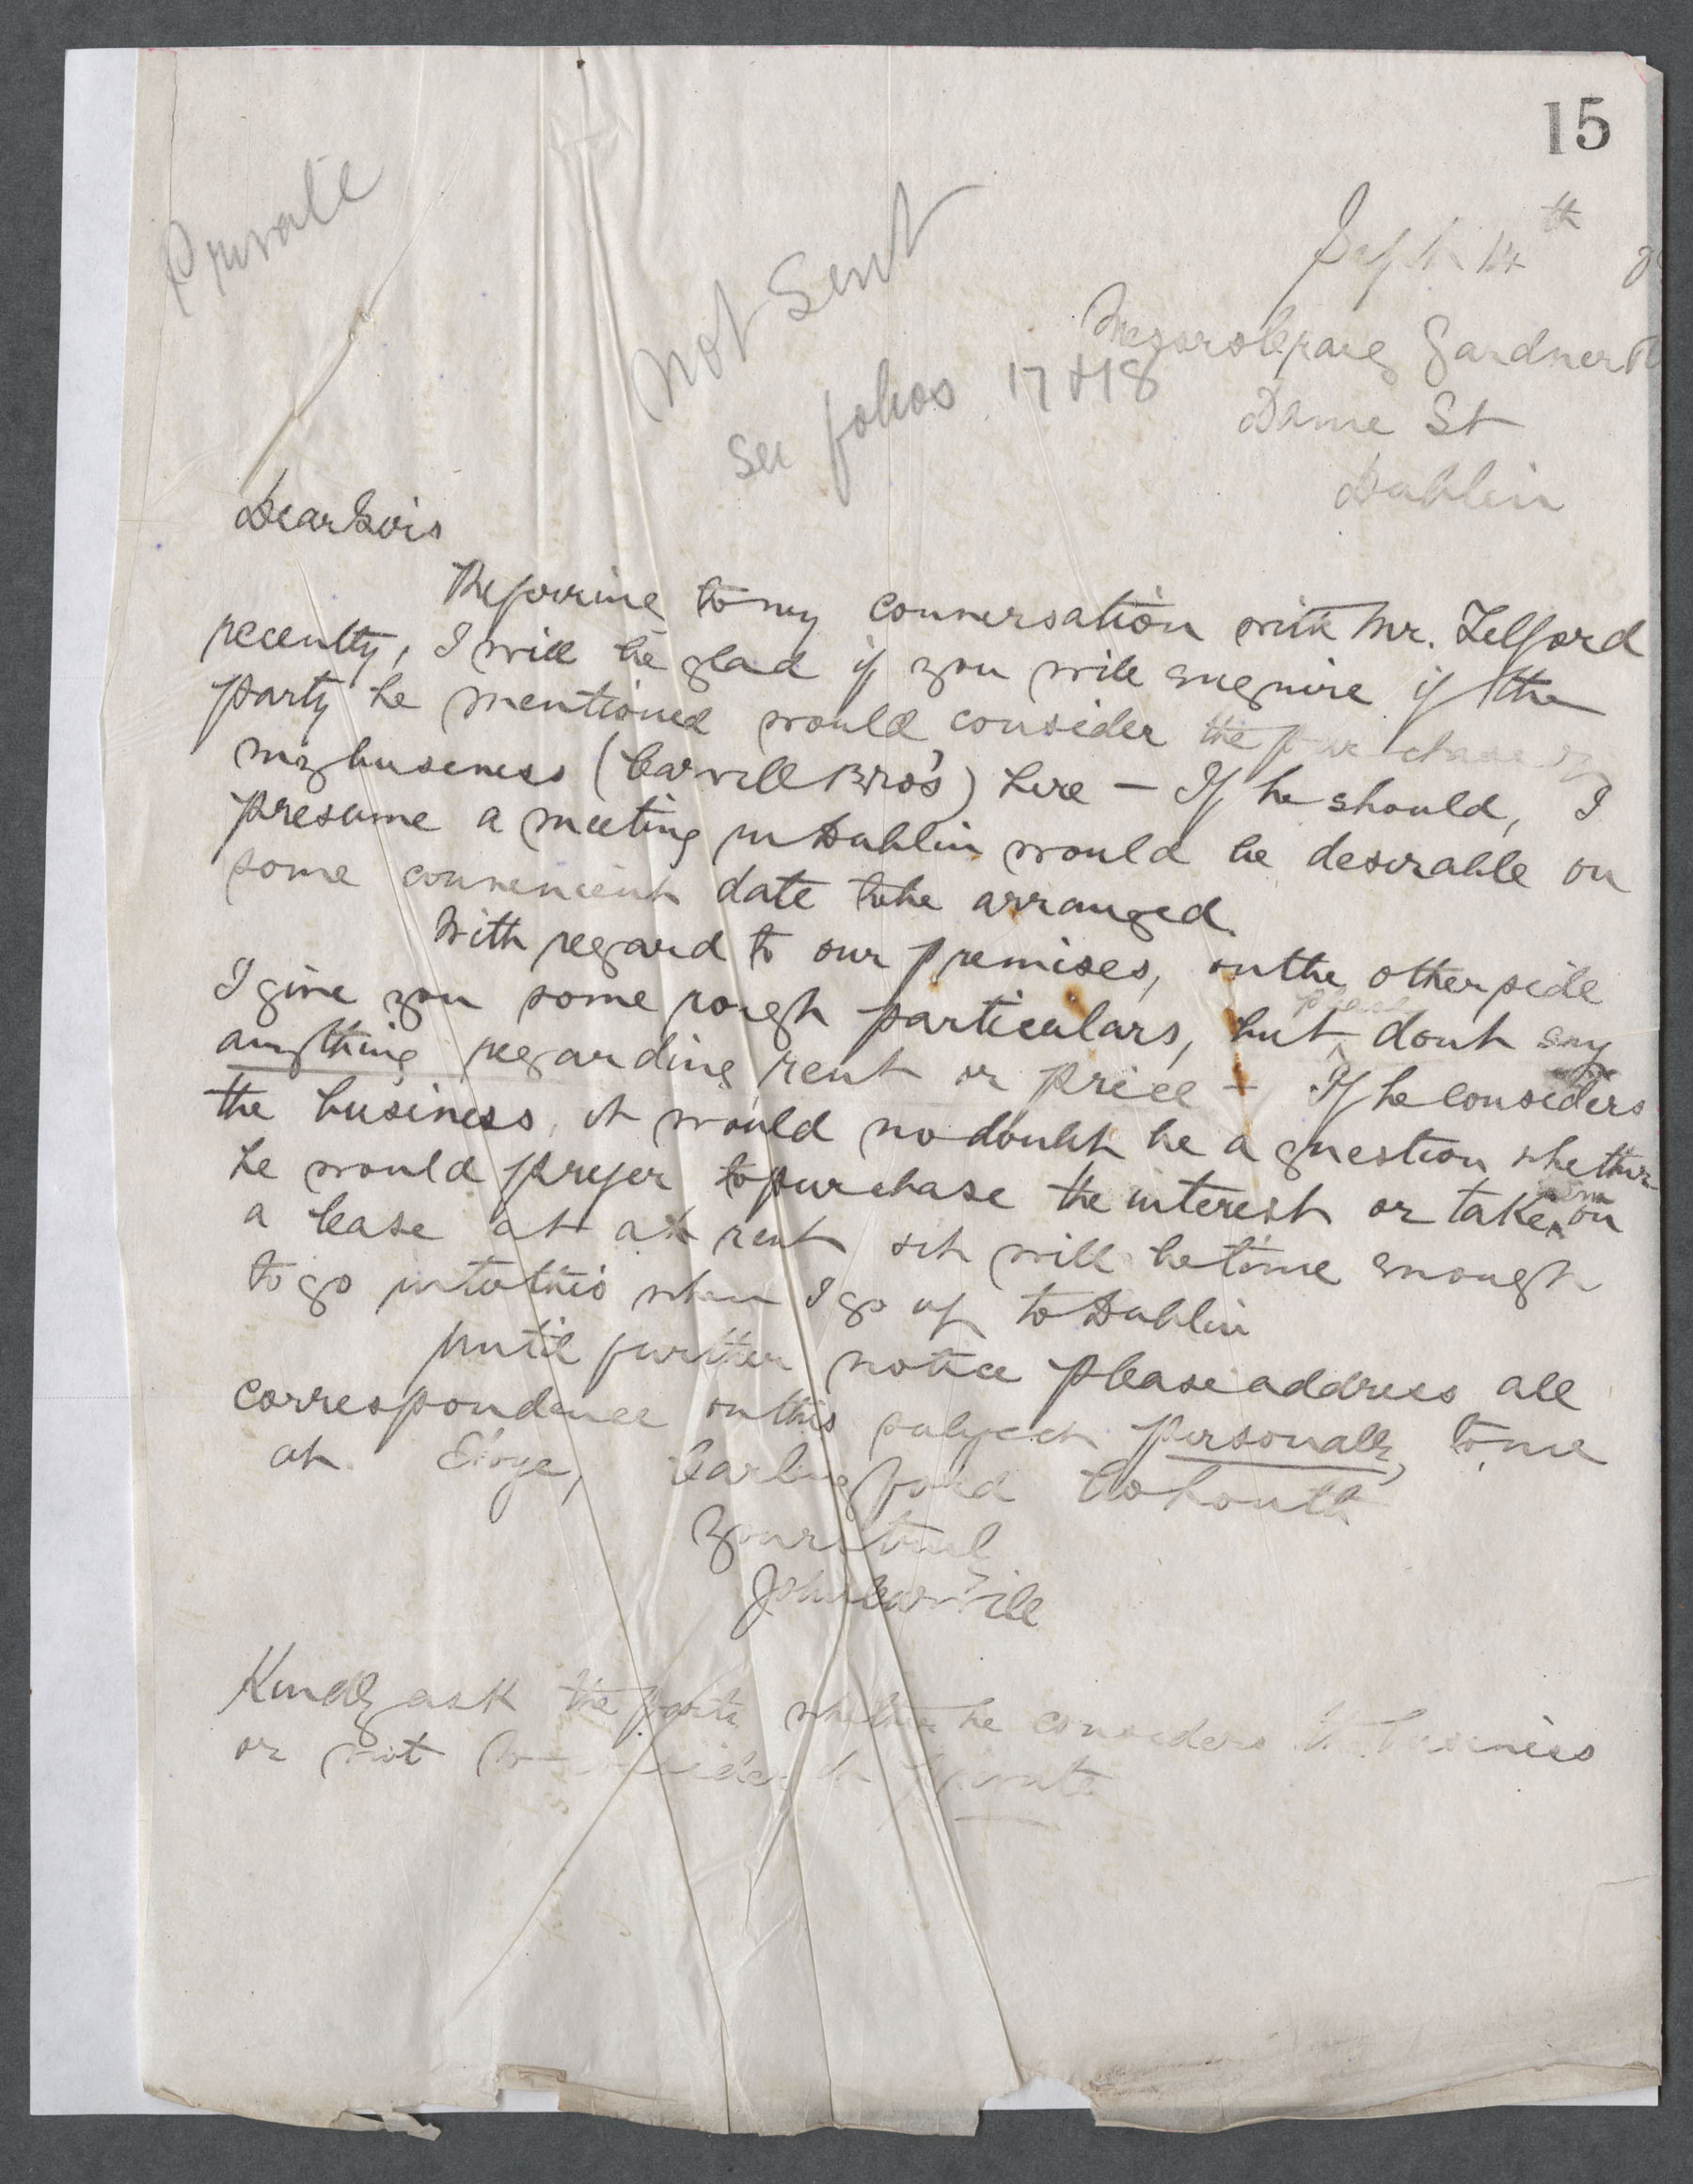 15
Private
Not Sent
See folios 17 & 18
Sept 14th
Messrs Craig Gardner
Dame St
Dublin
Dear Sirs
Referring to my conversation with Mr. Telford
recently, I will be glad if you will enquire if the
party he mentioned would consider the purchase of
my business (Carvill Bro's) here – If he should, I
presume a meeting in Dublin would be desirable on
some convenient date to be arranged.
With regard to our premises, on the other side
I give you some rough particulars, but please dont say
anything regarding rent or price – If he considers
the business, it would no doubt be a question whether
he would prefer to purchase the interest or take on
a lease at a rent will be time enough
to go into this when I go up to Dublin
Until further notice please address all
correspondence on this subject personally to me
at Carlingford Co Louth
Yours truly
John Carvill
Kindly ask the party whether he considers the business
or not to consider it private